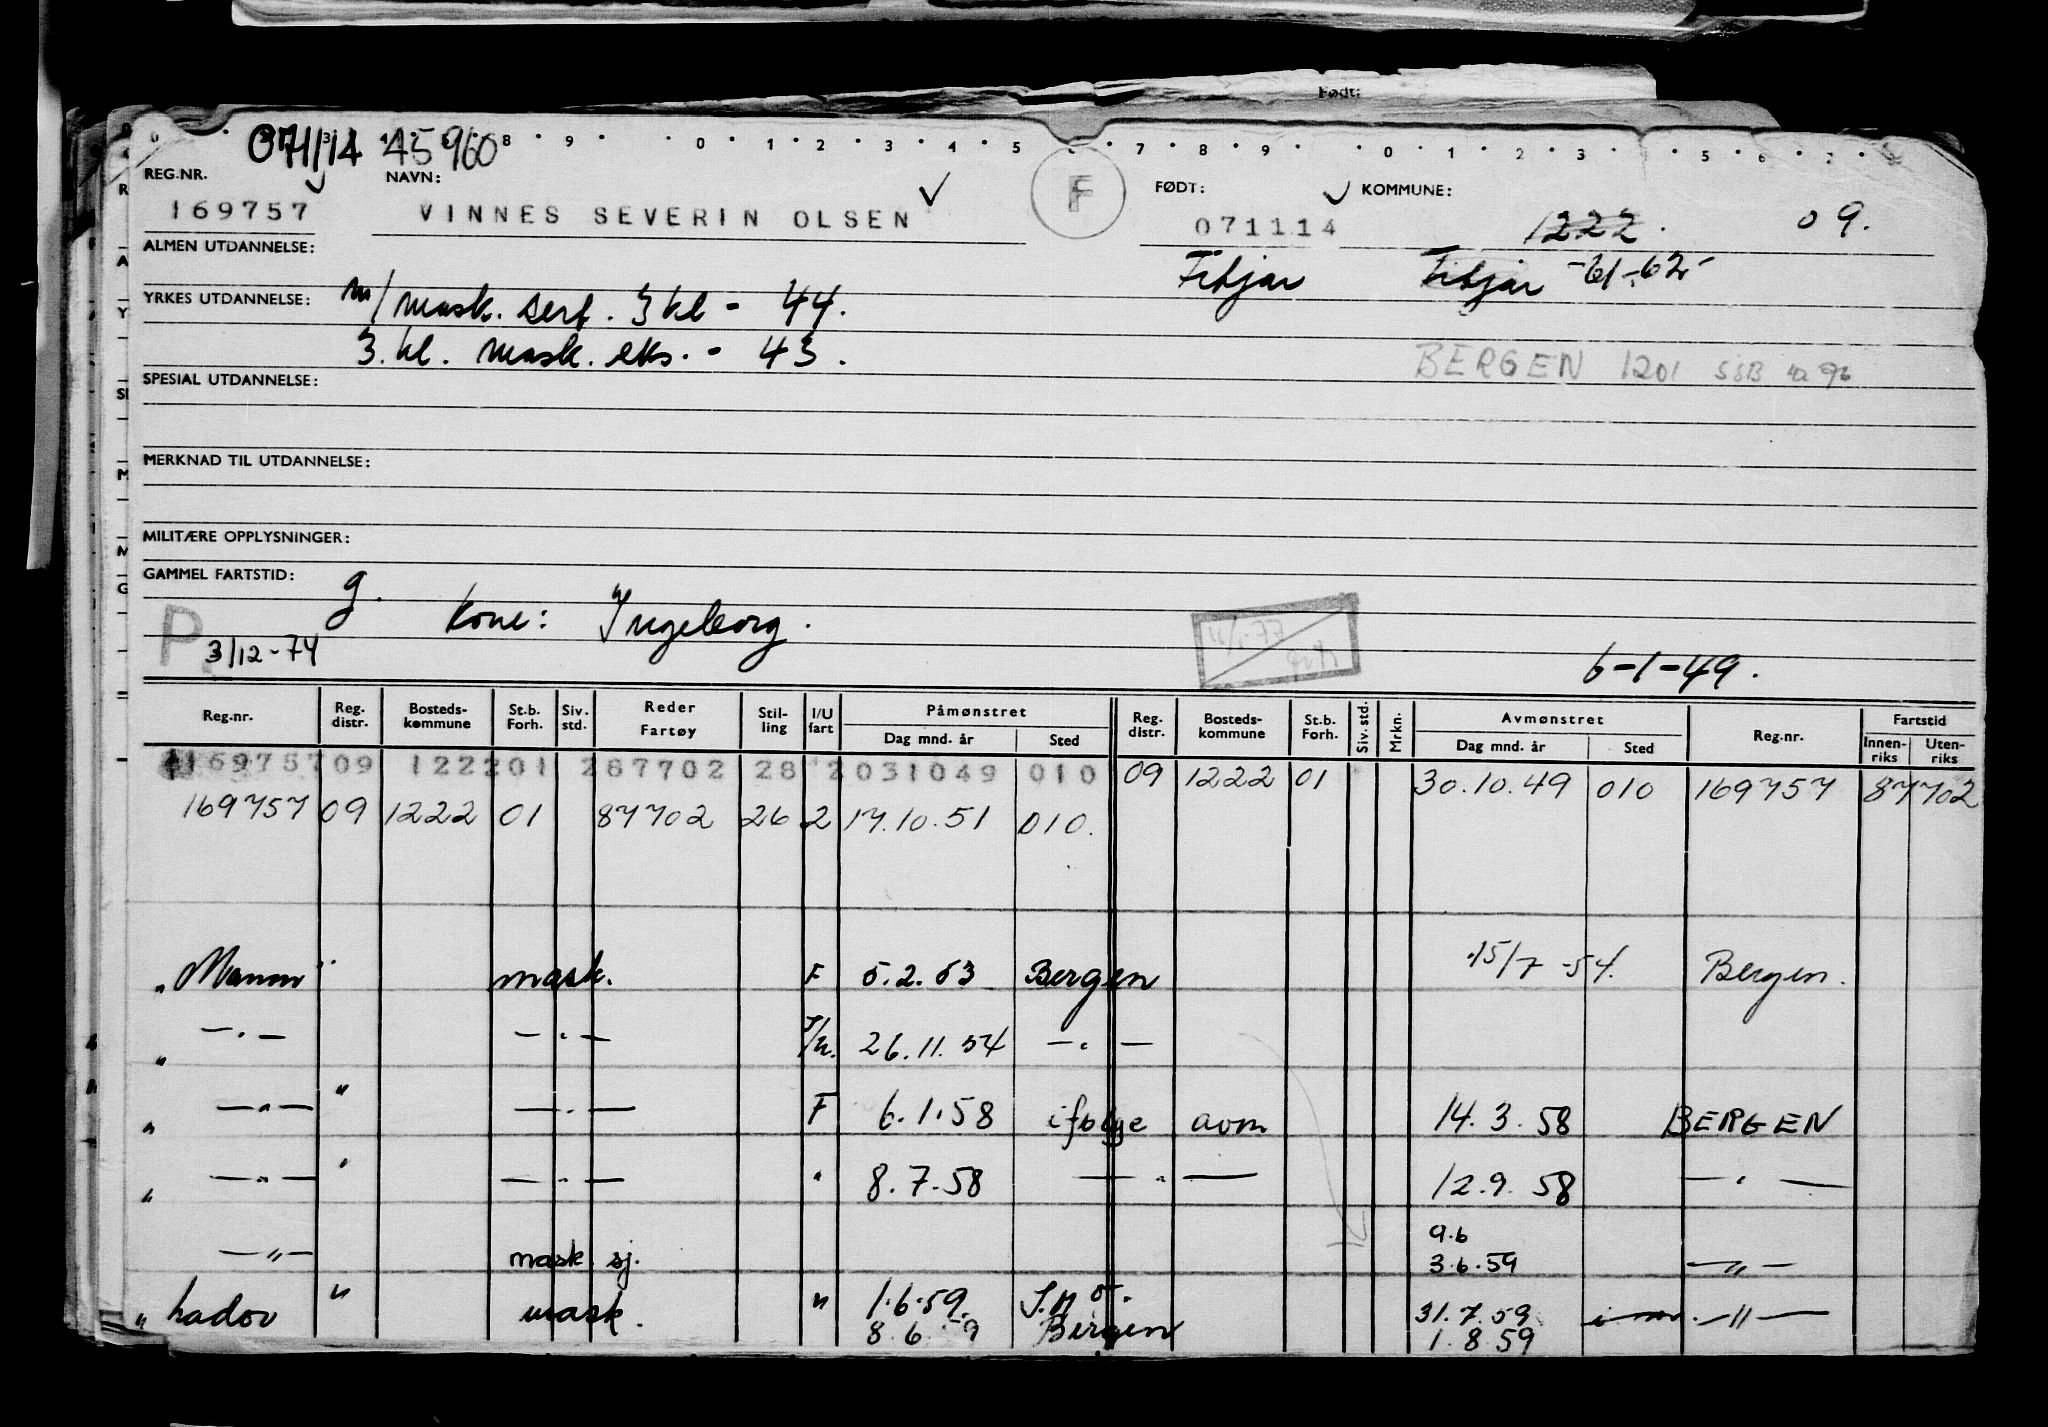 Født:
071114 45960
REG.NR. NAVN: FØDT: KOMMUNE:
169757 VINNES SEVERIN OLSEN F 071114 1222. 09.
ALMEN UTDANNELSE:
Fitjar Fitjar -61-62-
YRKES UTDANNELSE: m/mask. sert. 3 kl - 44.
3. kl. mask. eks. - 43.
BERGEN 1201
SPESIAL UTDANNELSE:
MERKNAD TIL UTDANNELSE:
MILITÆRE OPPLYSNINGER:
GAMMEL FARTSTID: g.
Kone: Ingeborg.
P. 3/12-74
6-1-49.
Reg.nr. Reg. distr. Bosteds-kommune St.b. Forh. Siv. std. Reder Fartøy Stil-ling I/U fart Påmønstret Dag mnd. år Sted Reg. distr. Bosteds-kommune St.b. Forh. Siv. std. Mrkn. Avmønstret Dag mnd. år Sted Reg.nr. Fartstid Innen-riks Uten-riks
169757 09 1222 01 287702 28 2 031049 010 09 1222 01 30.10.49 010 169757 87702
169757 09 1222 01 87702 26 2 17.10.51 010.
mask. F 5.2.53 Bergen 15/7-54. Bergen.
" —"— —"— 26.11.54 —"—
" —"— " —"— F 6.1.58 ifølge avm 14.3.58 BERGEN
" —"— " —"— " 8.7.58 —"— 12.9.58 —"—
9.6
—"— mask. sj. 3.6.59 —"—
" Lador " mask. " 1.6.59. 31.7.59 —"—
8.6.59 Bergen 1.8.59